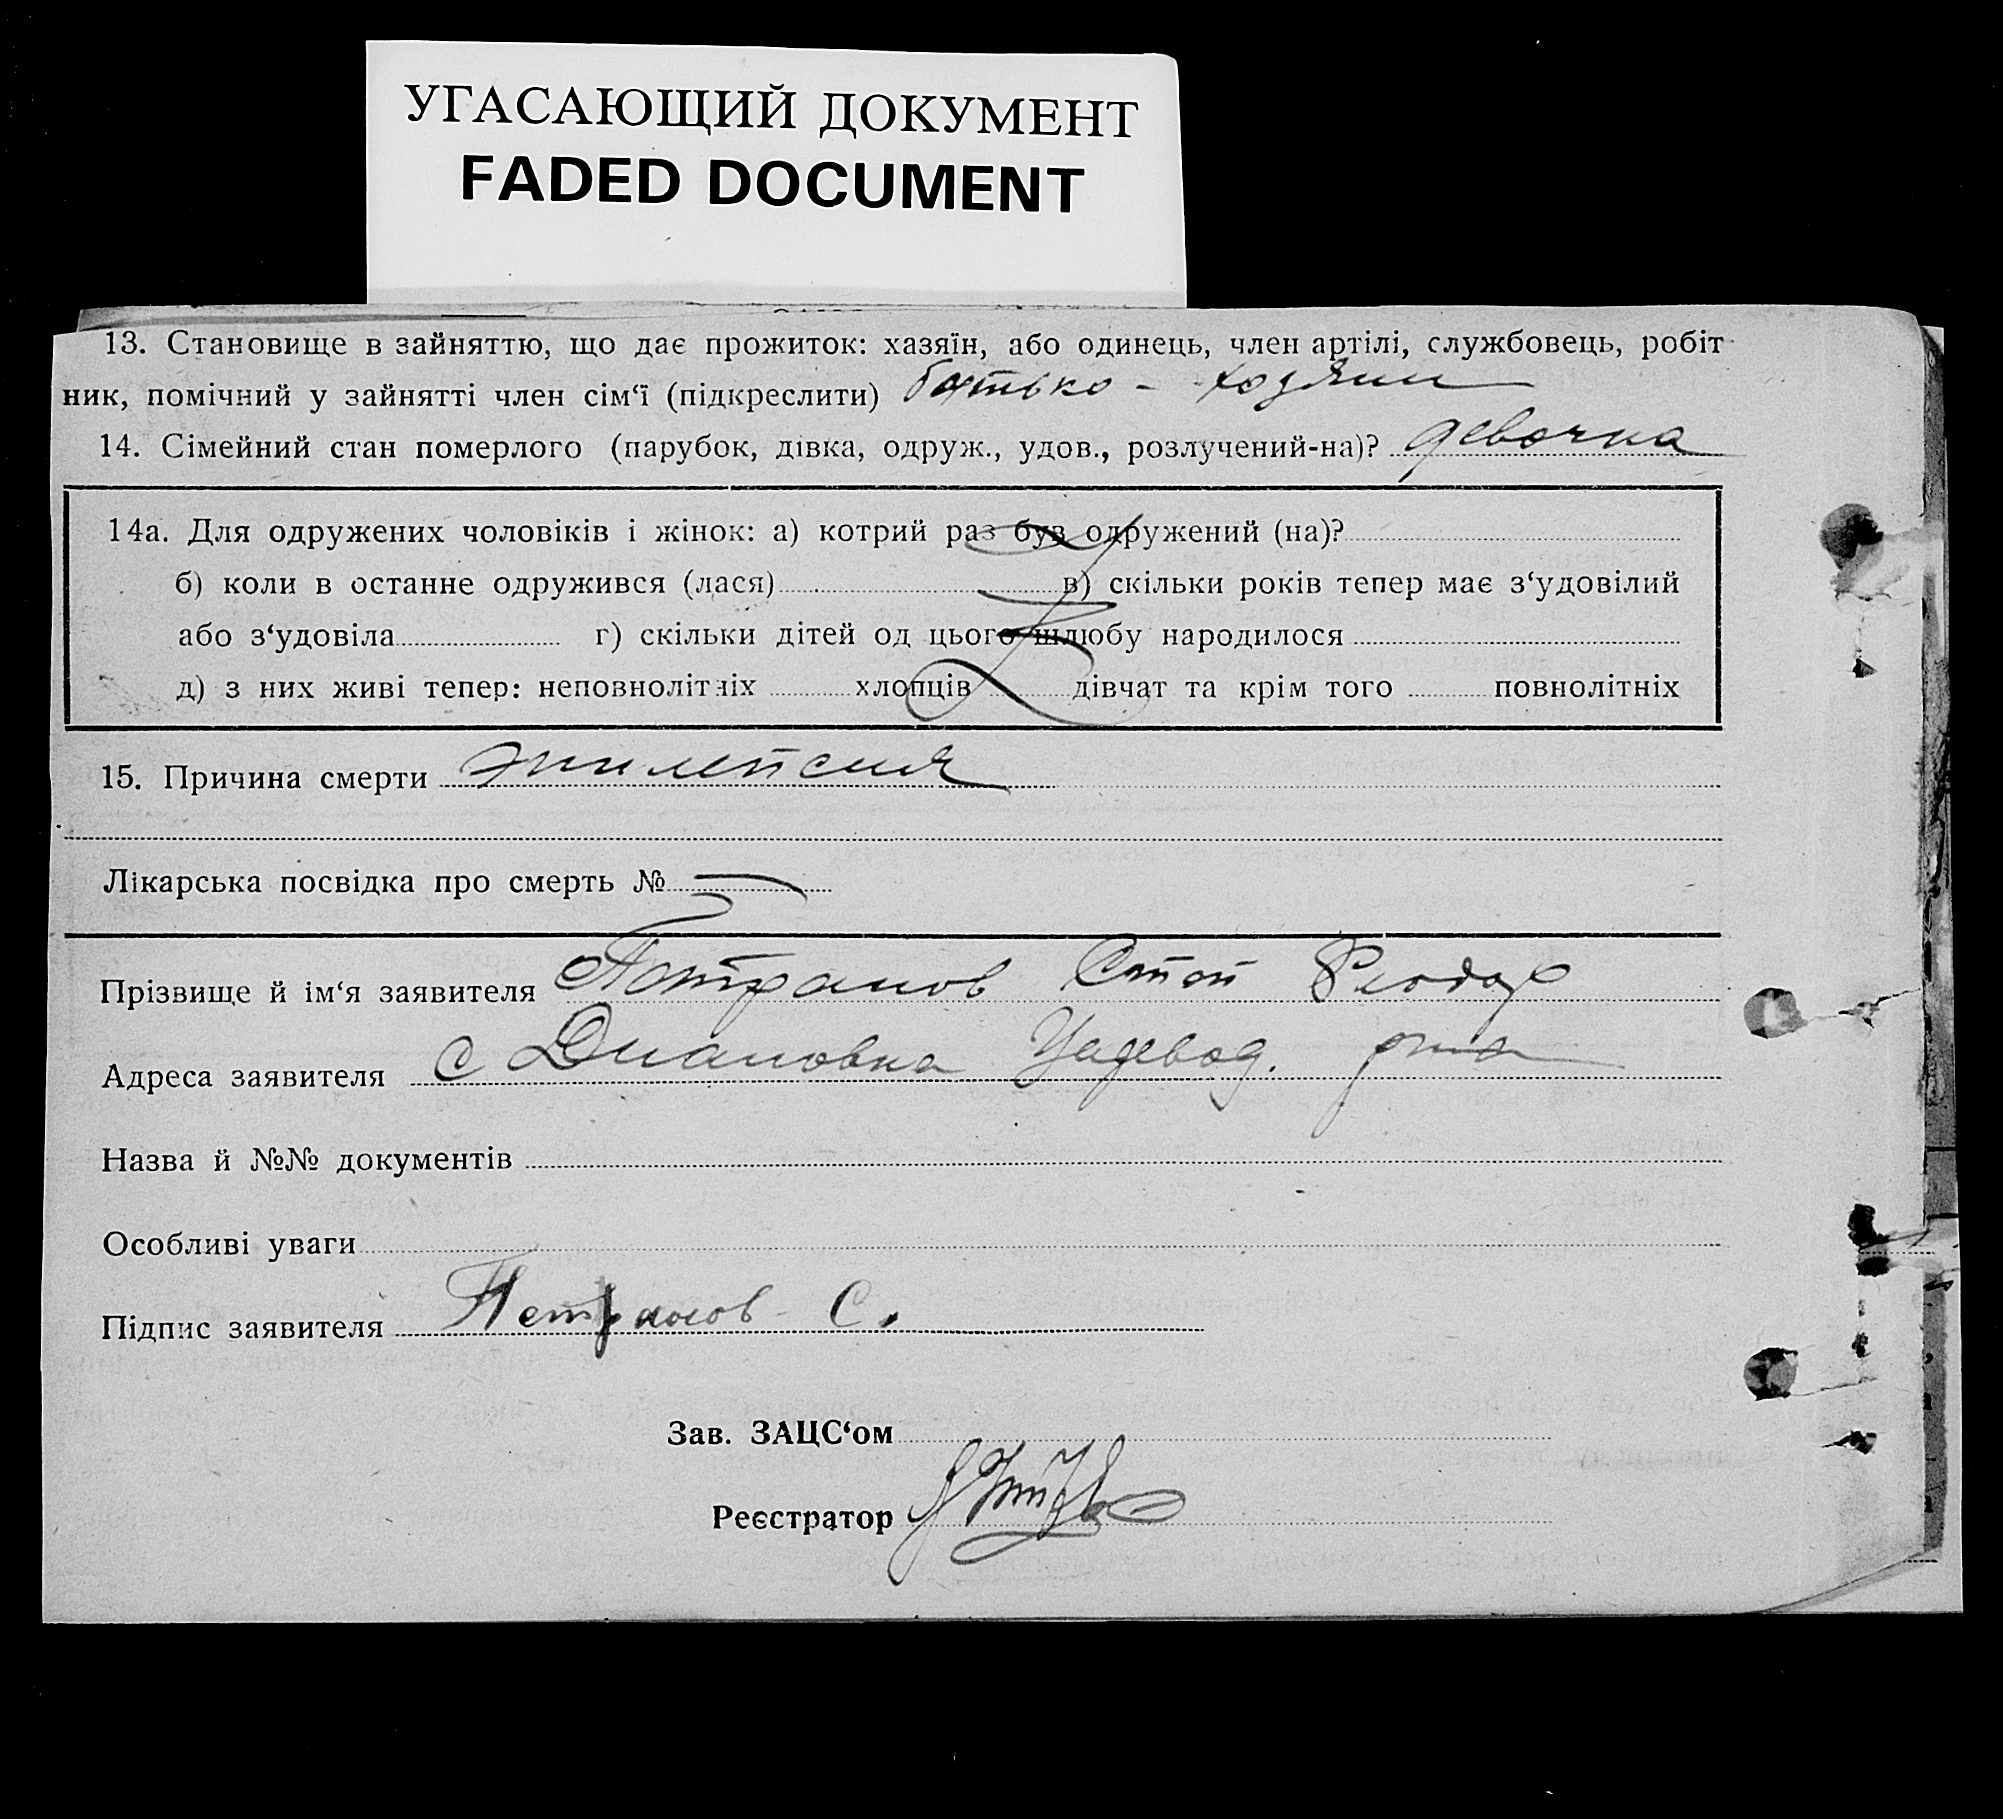 УГАСАЮЩИЙ ДОКУМЕНТ
FADED DOCUMENT
13. Становище в зайняттю, що дає прожиток: хазяїн, або одинець, член артілі, службовець, робіт
ник, помічний у зайнятті член сім‘ї (підкреслити) батько - хозяин
14. Сімейний стан померлого (парубок, дівка, одруж., удов., розлучений-на)? девочка
14а. Для одружених чоловіків і жінок: а) котрий раз був одружений (на)?
б) коли в останне одружився (лася) в) скільки років тепер має з‘удовілий
або з‘удовіла г) скільки дітей од цього шлюбу народилося
д) з них живі тепер: неповнолітніх хлопців дівчат та крім того повнолітніх
15. Причина смерти эпилепсия
Лікарська посвідка про смерть №
Прізвище й ім‘я заявителя Петранов Степ Феодор
Адреса заявителя с Диановка
Назва й №№ документів
Особливі уваги
Підпис заявителя Петранов С.
Зав. ЗАЦС‘ом
Реєстратор